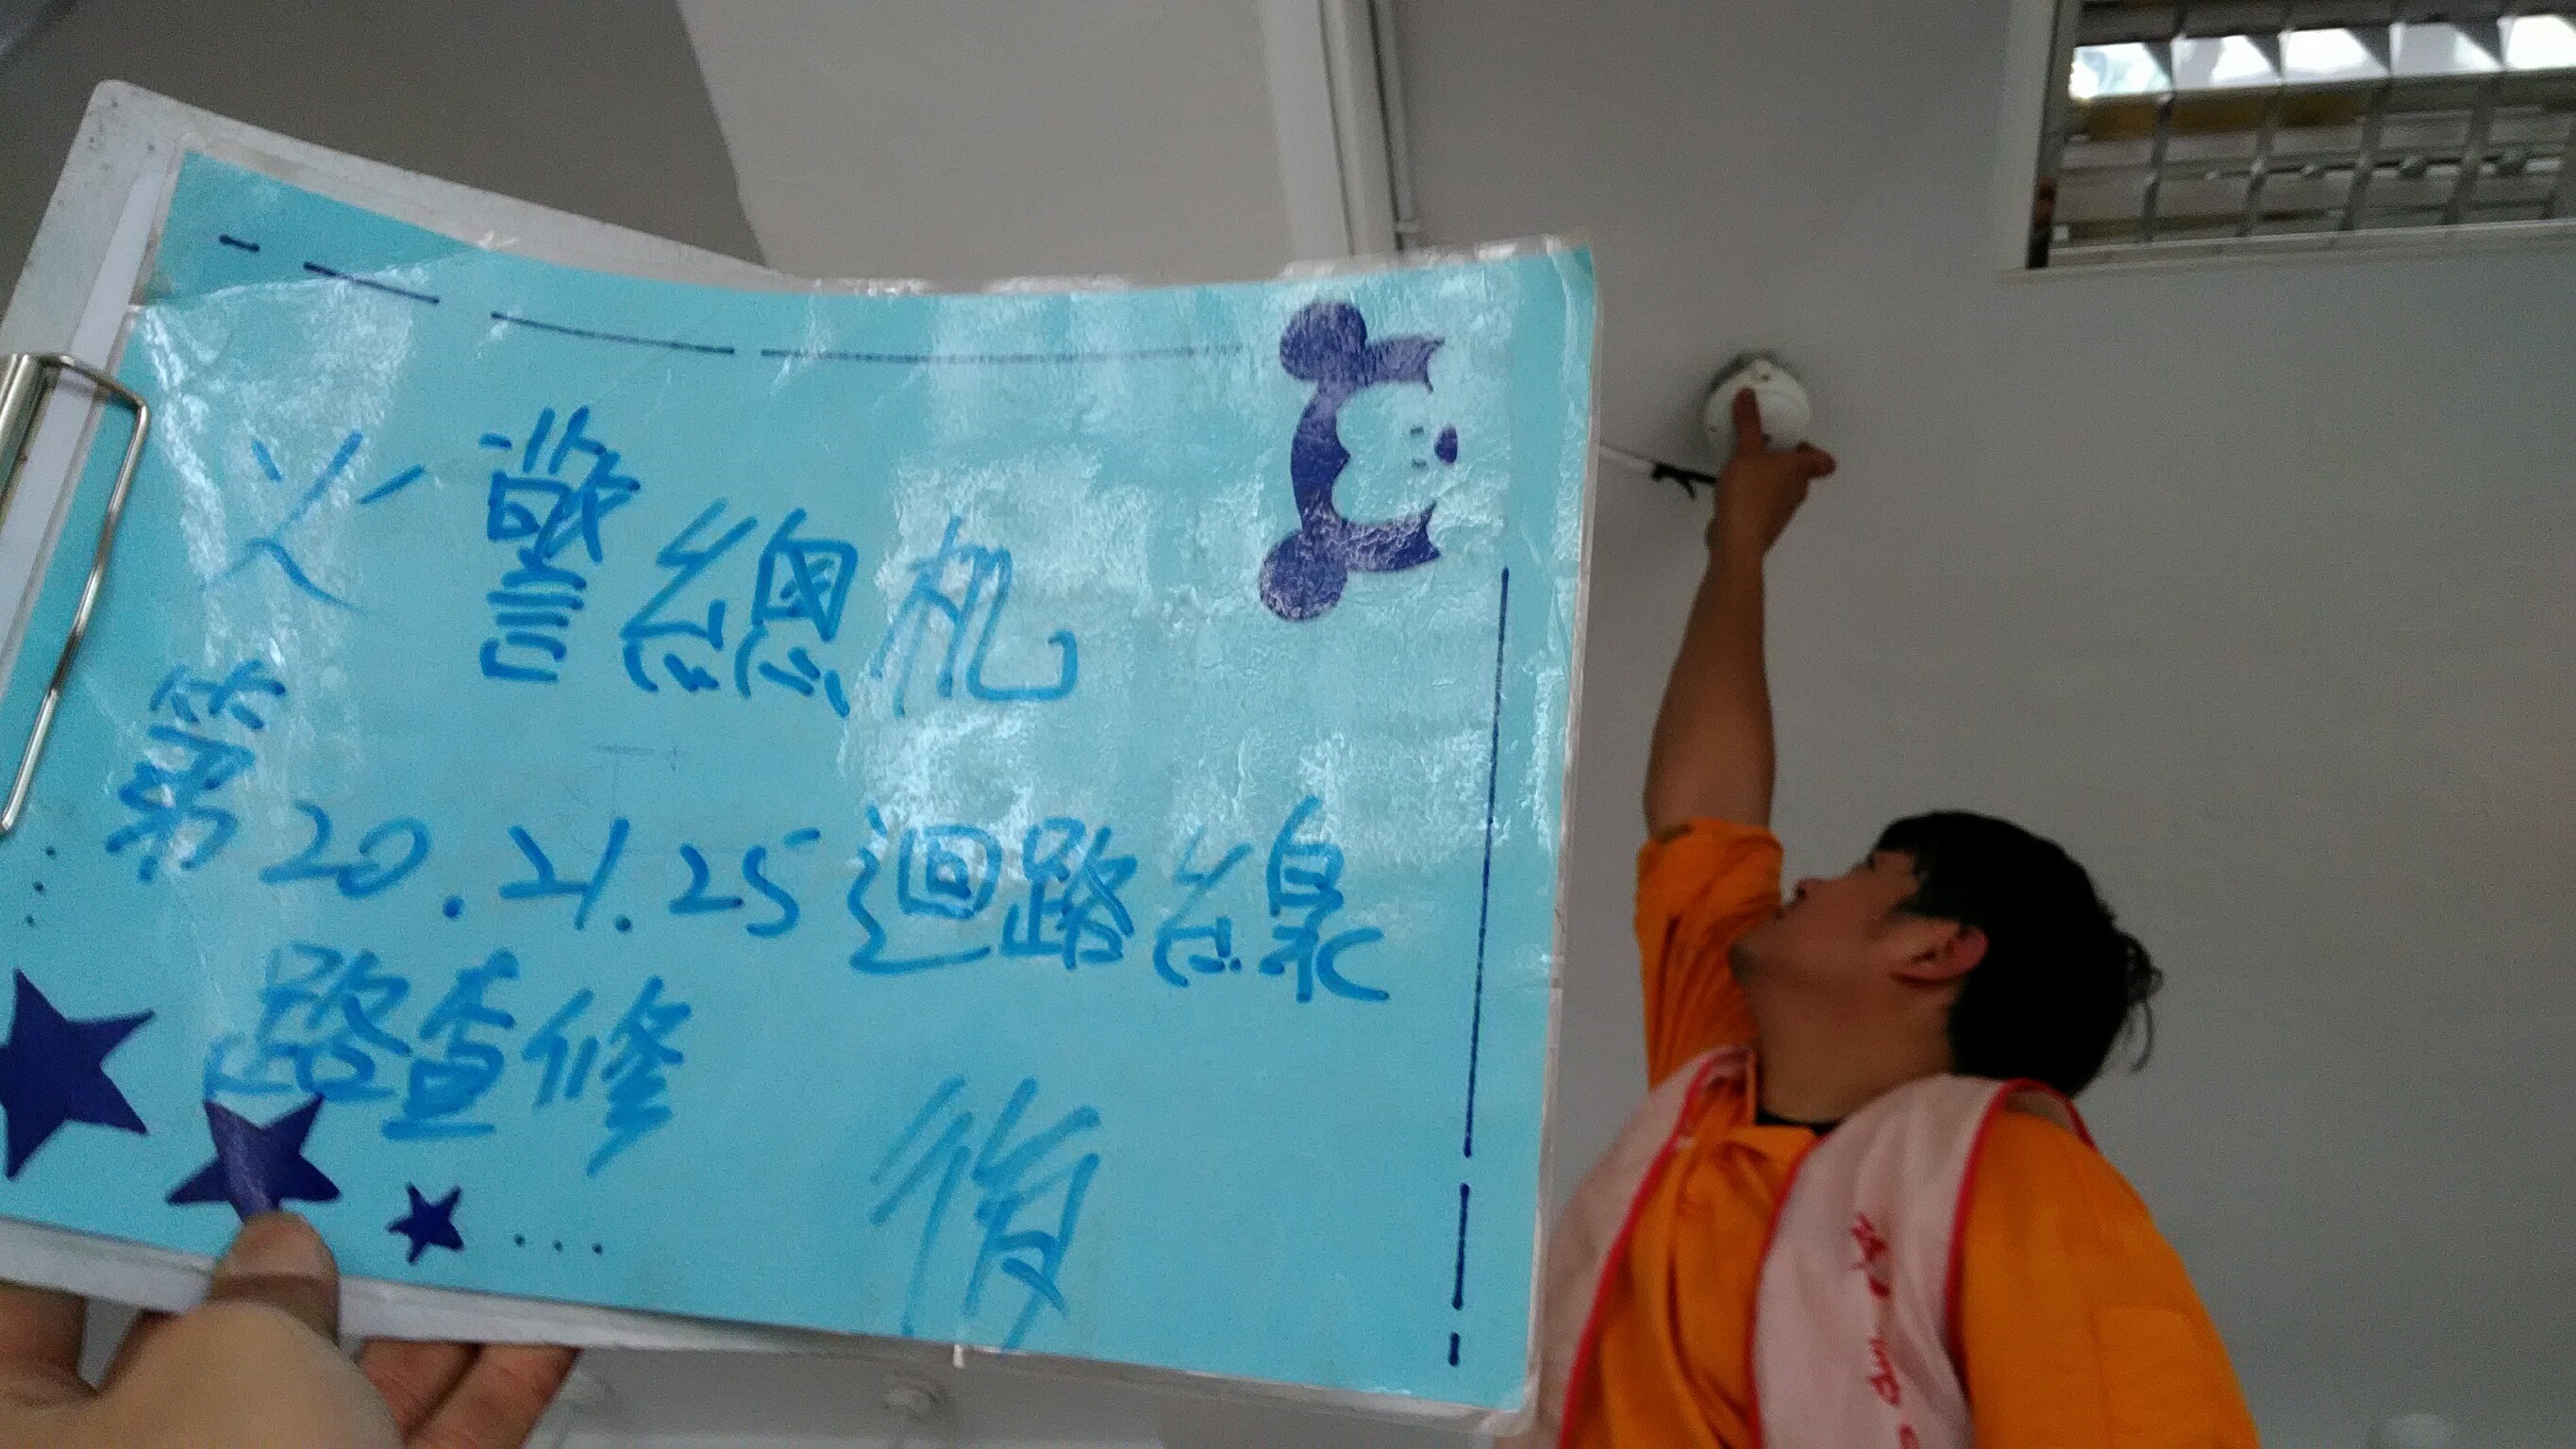 火警總机
第20.21.25迴路線
路查修
後